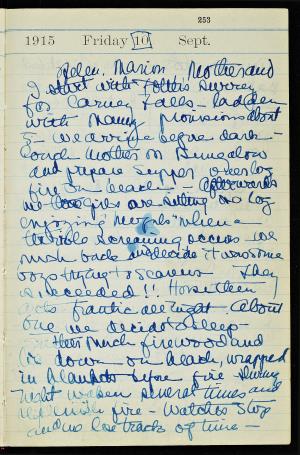 253
1915 Friday 10 Sept.
Helen, Marion Mother and
I start with Folkis Surrey
for Carney Falls - ladden
with many provisions about
5 - we arrive before dark -
Couch Mother on Bungalow
and prepare supper over log
fire on beach - Afterwards
we girls are sitting on log
enjoying "when a
terrible screaming occurs we
rush back and decide it was some
boys trying to scare us They
succeeded!! Horseteen
acts frantic all night. About
one we decide to sleep -
Gather much firewood and
lie down on beach, wrapped
in blankets before fire During
night waken several times and
replenish fire - Watches stop
and we lose track of time -